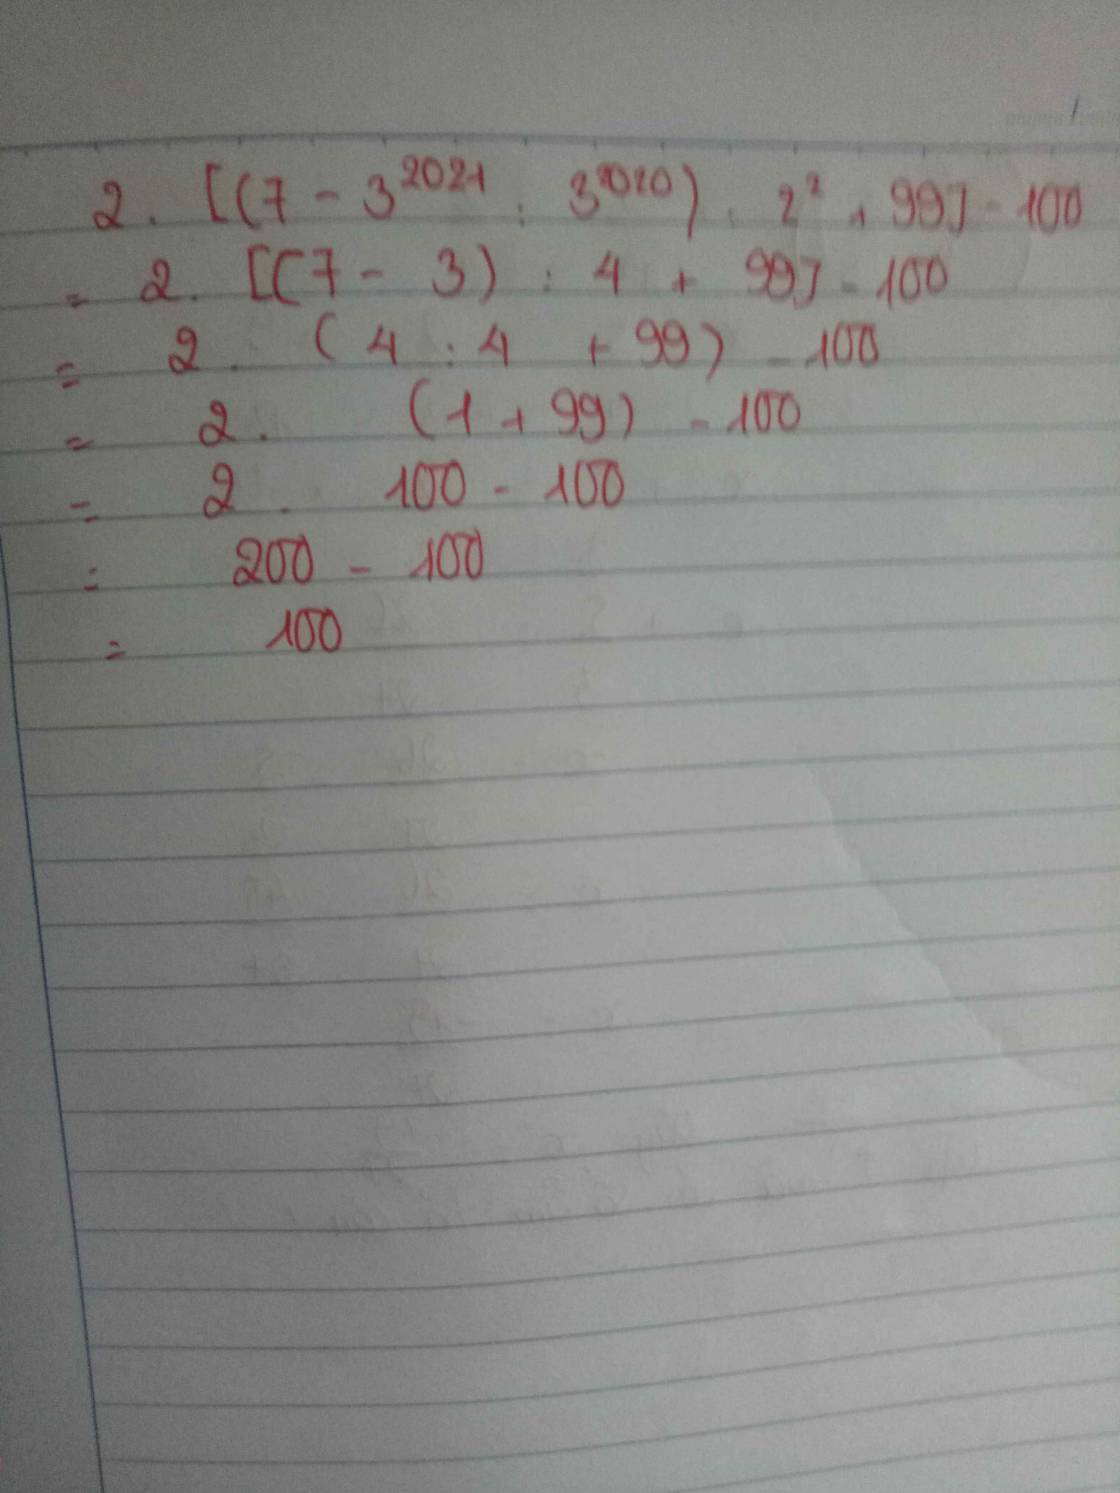 2 . [(7 - 3²⁰²¹ : 3²⁰²⁰) : 2² + 99] - 100
= 2 . [(7 - 3) : 4 + 99] - 100
= 2 . (4 : 4 + 99) - 100
= 2 . (1 + 99) - 100
= 2 . 100 - 100
= 200 - 100
= 100